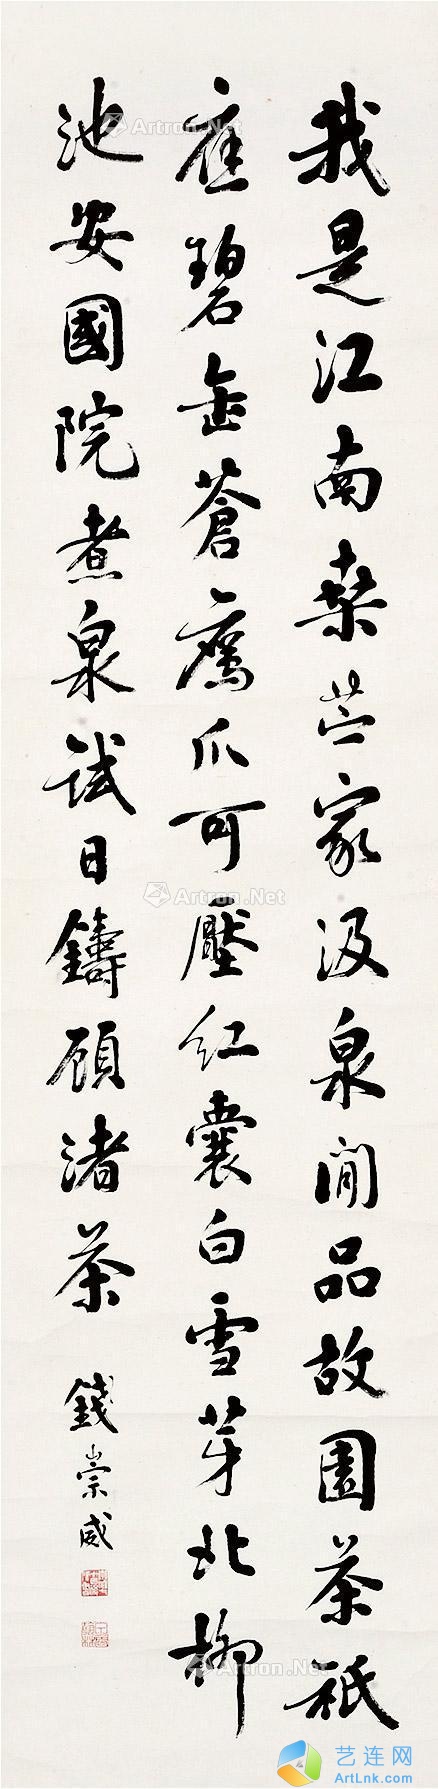 我是江南桑苎家汲泉閒品故園茶祇
應碧缶蒼鷹爪可壓紅囊白雪芽北柳
池安國院煮泉試日鑄顧渚茶
錢崇威
Artron.Net
Artron.Net
Artron.Net
艺连网
ArtLnk.com